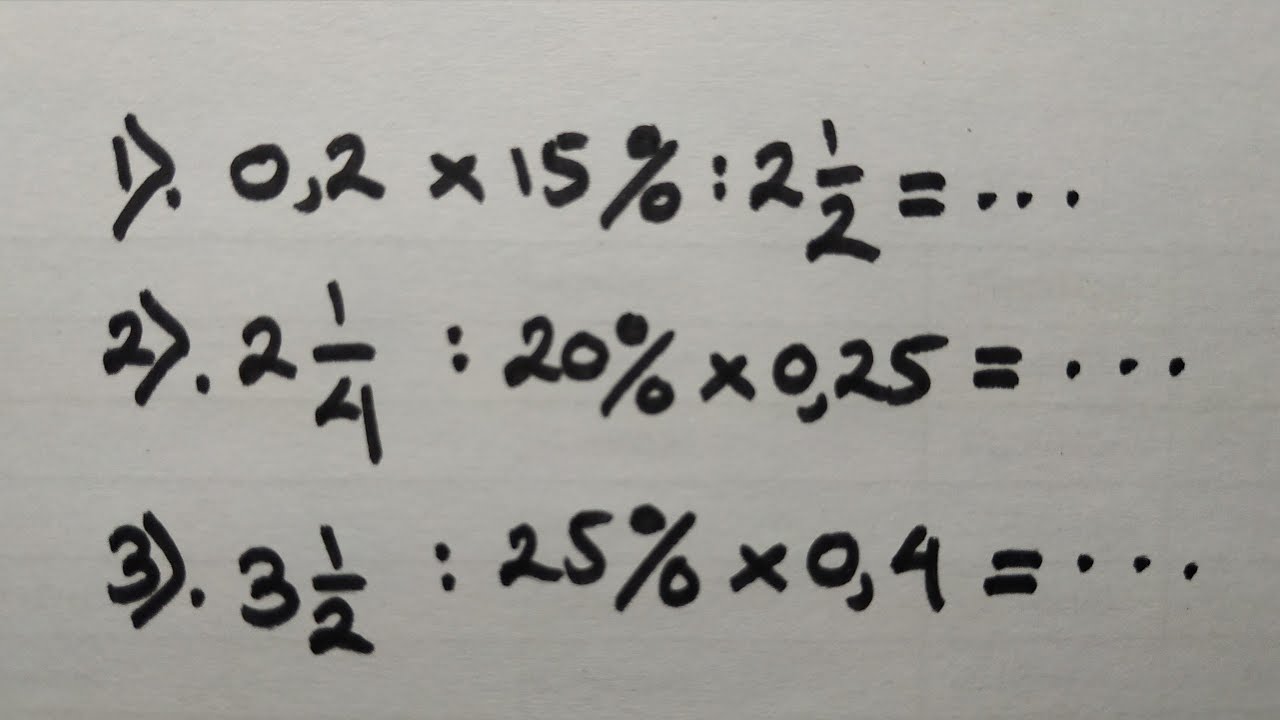 1). 0,2 × 15% : 2 1/2 = ...
2). 2 1/4 : 20% × 0,25 = ...
3). 3 1/2 : 25% × 0,4 = ...